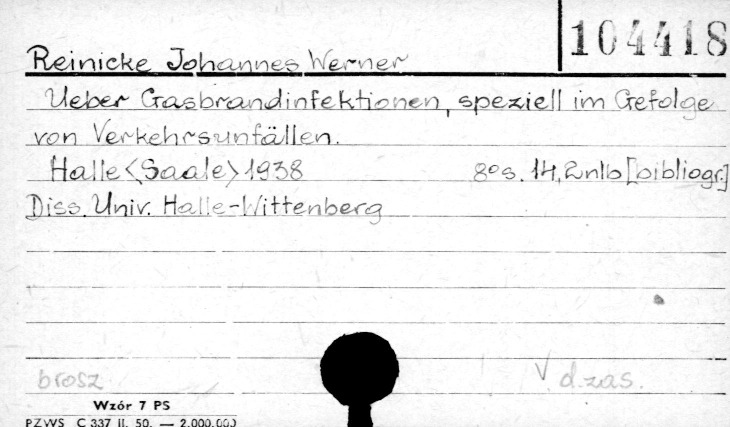 104418
Reinicke Johannes Werner
Ueber Gasbrandinfektionen, speziell im Gefolge
von Verkehrsunfällen.
Halle <Saale> 1938 8° s. 14, 2nlb [bibliogr.]
Diss. Univ. Halle-Wittenberg
brosz
V d.zas.
Wzór 7 PS
PZWS C 337 II. 50. — 2.000.000